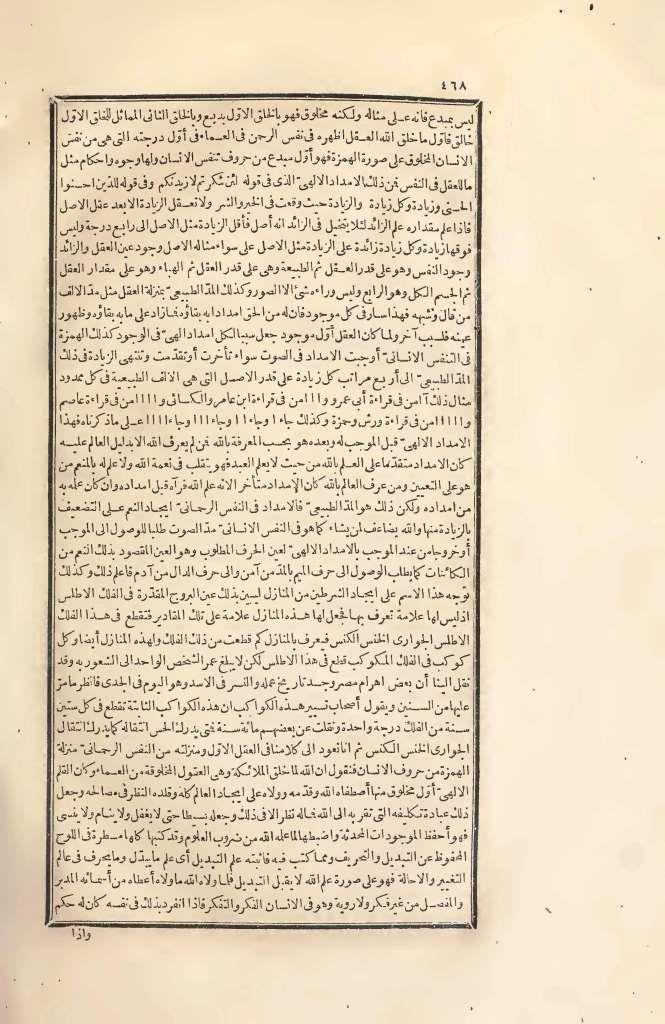 ٤٦٨
ليس بمبدع فانه على مثاله ولكنه مخلوق فهو بالخلق الاوّل بديع وبالخلق الثانى المماثل للخلق الاوّل
خالق فأوّل ما خلق الله العقل اظهره فى نفس الرحمن فى العماء فى أوّل درجته التى هى من نفس
الانسان المخلوق على صورة الهمزة فهو أوّل مبدع من حروف تنفس الانسان ولها وجوه واحكام مثل
ما للعقل فى النفس فمن ذلك الامداد الالهىّ الذى فى قوله لئن شكرتم لازيدنكم وفى قوله للذين احسنوا
الحسنى وزيادة وكل زيادة والزيادة حيث وقعت فى الخير والشر ولا تعقل الزيادة الا بعد عقل الاصل
فاذا علم مقداره علم الزائد لئلا يتخيل فى الزائد انه أصل فأقل الزيادة مثل الاصل الى رابع درجة وليس
فوقها زيادة وكل زيادة زائدة على الزيادة مثل الاصل على سواء مثاله الاصل وجود عين العقل والزائد
وجود النفس وهو على قدر العقل ثم الطبيعة وهى على قدر العقل ثم الهباء وهو على مقدار العقل
ثم الجسم الكل وهو الرابع وليس وراءه شئ الا الصور وكذلك المدّ الطبيعىّ بمنزلة العقل مثل مدّ الالف
من قال وشبهه فهذا سار فى كل موجود فان له من الحق امدادا به بقاؤه فما زاد على ما به بقاؤه وظهور
عينه فلسبب آخر ولما كان العقل أوّل موجود جعل سببا لكل امداد الهىّ فى الوجود كذلك الهمزة
فى التنفس الانسانىّ أوجبت الامداد فى الصوت سواء تأخرت أو تقدّمت وتنتهى الزيادة فى ذلك
المدّ الطبيعىّ الى أربع مراتب كل زيادة على قدر الاصل التى هى الالف الطبيعية فى كل ممدود
مثال ذلك آامن فى قراءة أبى عمرو واا امن فى قراءة ابن عامر والكسائى واااا من فى قراءة عاصم
وااااا من فى قراءة ورش وحمزة وكذلك جاء ا وجاء اا وجاء ااا وجاء اااا على ما ذكرناه فهذا
الامداد الالهىّ قبل الموجب له وبعده هو بحسب المعرفة بالله فمن لم يعرف الله الا بدليل العالم عليه
كان الامداد متقدّما على العلم بالله من حيث لا يعلم العبد فهو يتقلب فى نعمة الله ولا علم له بالمنعم من
هو على التعيين ومن عرف العالم بالله كان الامداد متأخر الانه علم الله فرآه قبل امداده وان كان علمه به
من امداده ولكن ذلك هو المدّ الطبيعىّ فالامداد فى النفس الرحمانىّ ايجاد النعم على التضعيف
بالزيادة منها والله يضاعف لمن يشاء كما هو فى النفس الانسانىّ مدّ الصوت طلبا للوصول الى الموجب
أو خروجا من عند الموجب بالامداد الالهىّ لعين الحرف المطلوب وهو العين المقصود بذلك النعم من
الكائنات كما يطلب الوصول الى حرف الميم بالمدّ من آمن والى حرف الدال من آدم فاعلم ذلك وكذلك
توجه هذا الاسم على ايجاد الشرطين من المنازل ليبين بذلك عين البروج المقدّرة فى الفلك الاطلس
اذ ليس لها علامة تعرف بها فجعل لها هذه المنازل علامة على تلك المقادير فتقطع فى هذا الفلك
الاطلس الجوارى الخنس الكنس فيعرف بالمنازل كم قطعت من ذلك الفلك ولهذه المنازل أيضا وكل
كوكب فى الفلك المكوكب قطع فى هذا الاطلس لكن لا يبلغ عمر الشخص الواحد الى الشعور به وقد
نقل الينا أن بعض اهرام مصر وجد تاريخ عمله والنسر فى الاسد وهو اليوم فى الجدى فانظر ما مرّ
عليها من السنين ويقول أصحاب تسيير هذه الكواكب ان هذه الكواكب الثابتة تقطع فى كل ستين
سنة من الفلك درجة واحدة ونقلت عن بعضهم مائة سنة فمتى يدرك الحس انتقاله كما يدرك انتقال
الجوارى الخنس الكنس ثم انا نعود الى كلامنا فى العقل الاوّل ومنزلته من النفس الرحمانىّ منزلة
الهمزة من حروف الانسان فنقول ان الله لما خلق الملائكة وهى العقول المخلوقة من العماء وكان القلم
الالهىّ أوّل مخلوق منها اصطفاه الله وقدّمه وولاه على ايجاد العالم كله وقلده النظر فى مصالحه وجعل
ذلك عبادة تكليفه التى تقربه الى الله فما له نظر الا فى ذلك وجعله بسيطا حتى لا يغفل ولا ينام ولا ينسى
فهو أحفظ الموجودات المحدثة واضبطها لما علمه الله من ضروب العلوم وقد كتبها كلها مسطرة فى اللوح
المحفوظ عن التبديل والتحريف ومما كتب فيه فاثبته علم التبديل أى علم ما يبدّل وما يحرف فى عالم
التغيير والاحالة فهو على صورة علم الله لا يقبل التبديل فلما ولاه الله ما ولاه أعطاه من أسمائه المدبر
والمفصل من غير فكر ولا روية وهو فى الانسان الفكر والتفكر فاذا انفرد بذلك فى نفسه كان له حكم
واذا